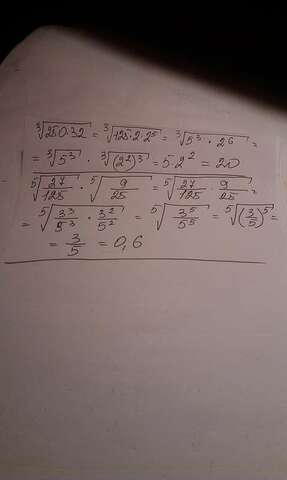 ∛(250·32) = ∛(125·2·2⁵) = ∛(5³·2⁶) =
= ∛(5³) · ∛((2²)³) = 5·2² = 20
⁵√(27/125) · ⁵√(9/25) = ⁵√(27/125 · 9/25) =
= ⁵√(3³/5³ · 3²/5²) = ⁵√(3⁵/5⁵) = ⁵√((3/5)⁵) =
= 3/5 = 0,6